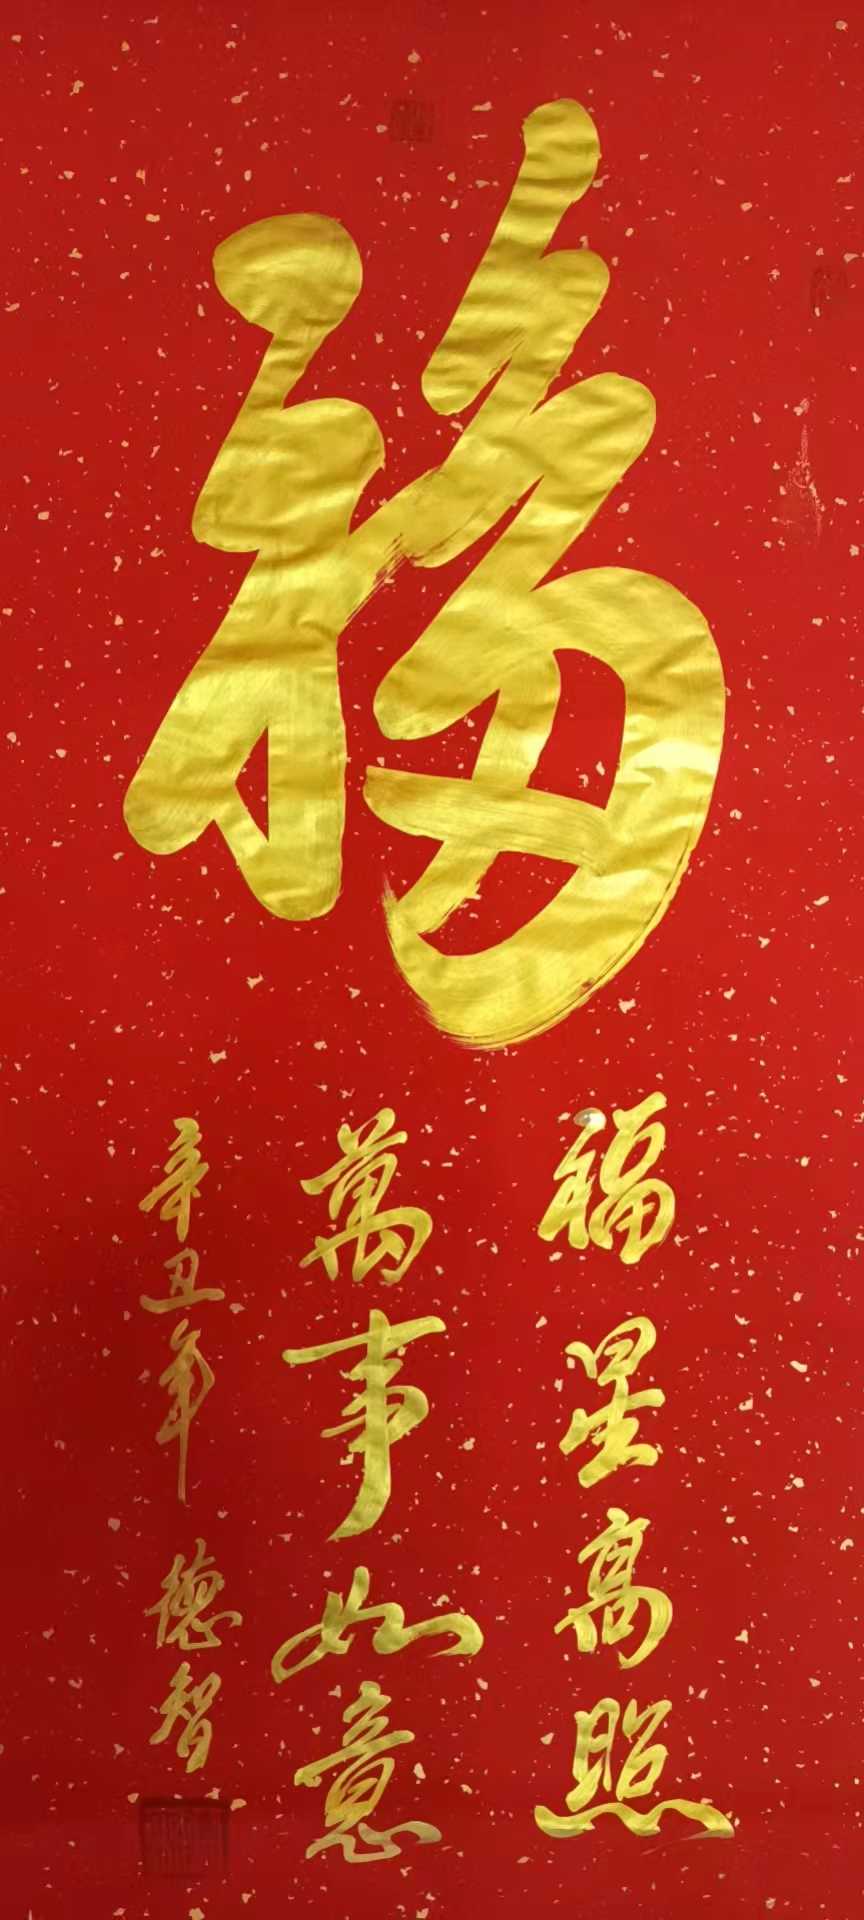 福
福星高照
萬事如意
辛丑年 德智